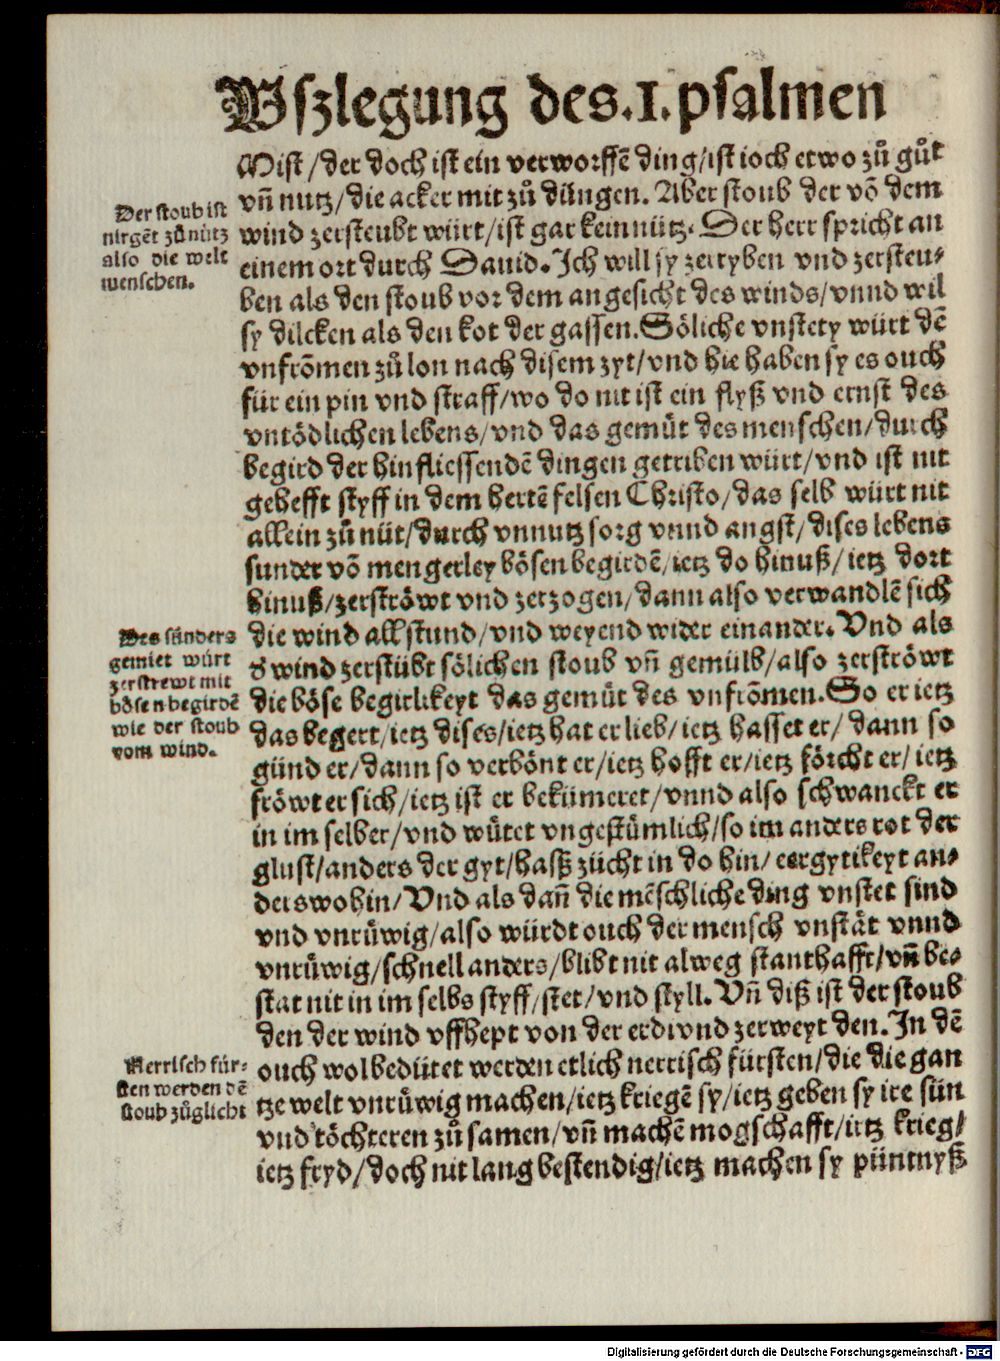 Vszlegung des .I. psalmen
Mist/der doch ist ein verworffē ding/ist ioch etwo zů gůt
vñ nutz/die acker mit zů düngen. Aber stoub der vō dem
wind zersteubt würt/ist gar kein nütz. Der herr spricht an
einem ort durch Dauid. Ich will sy zertryben vnd zersteu-
ben als den stoub vor dem angesicht des winds/vnnd wil
sy dilcken als den kot der gassen. Söliche vnstety würt dē
vnfrōmen zů lon nach disem zyt/vnd hie haben sy es ouch
für ein pin vnd straff/wo do nit ist ein flyß vnd ernst des
vntödlichen lebens/vnd das gemüt des menschen/durch
begird der hinfliessendē dingen getriben würt/vnd ist nit
gehefft styff in dem hertē felsen Christo/das selb würt nit
allein zů nüt/durch vnnutz sorg vnnd angst/dises lebens
sunder vō mengerley bösen begirdē/ietz do hinuß/ietz dort
hinuß/zerströwt vnd zerzogen/dann also verwandlē sich
die wind all stund/vnd weyend wider einander. Vnd als
d' wind zerstübt sölichen stoub vñ gemülb/also zerströwt
die böse begirlikeyt das gemüt des vnfrōmen. So er ietz
das begert/ietz dises/ietz hat er lieb/ietz hasset er/dann so
günd er/dann so verbönt er/ietz hofft er/ietz förcht er/ietz
fröwt er sich/ietz ist er bekümeret/vnnd also schwanckt er
in im selber/vnd wütet vngestümlich/so im anders rot der
glust/anders der gyt/hassz zücht in do hin/eergytikeyt an-
derswohin/Vnd als dañ die mēschliche ding vnstet sind
vnd vnrüwig/also würdt ouch der mensch vnstät vnnd
vnrüwig/schnell anders/blibt nit alweg stanthafft/vñ be-
stat nit in im selbs styff/stet/vnd styll. Vñ diß ist der stoub
den der wind vffhept von der erdt vnd zerweyt den. In dē
ouch wol bedütet werden etlich nerrisch fürsten/die die gan
tze welt vnrüwig machen/ietz kriegē sy/ietz geben sy ire sün
vnd töchteren zů samen/vñ machē mogschafft/ietz krieg/
ietz fryd/doch nit lang bestendig/ietz machen sy püntnyß
Der stoub ist
nirgēt zů nütz
also die welt
menschen.
Des sünders
gemiet würt
zerstrewt mit
bösen begirdē
wie der stoub
vom wind.
Nerrisch für-
sten werden dē
stoub zůglicht
Digitalisierung gefördert durch die Deutsche Forschungsgemeinschaft - DFG